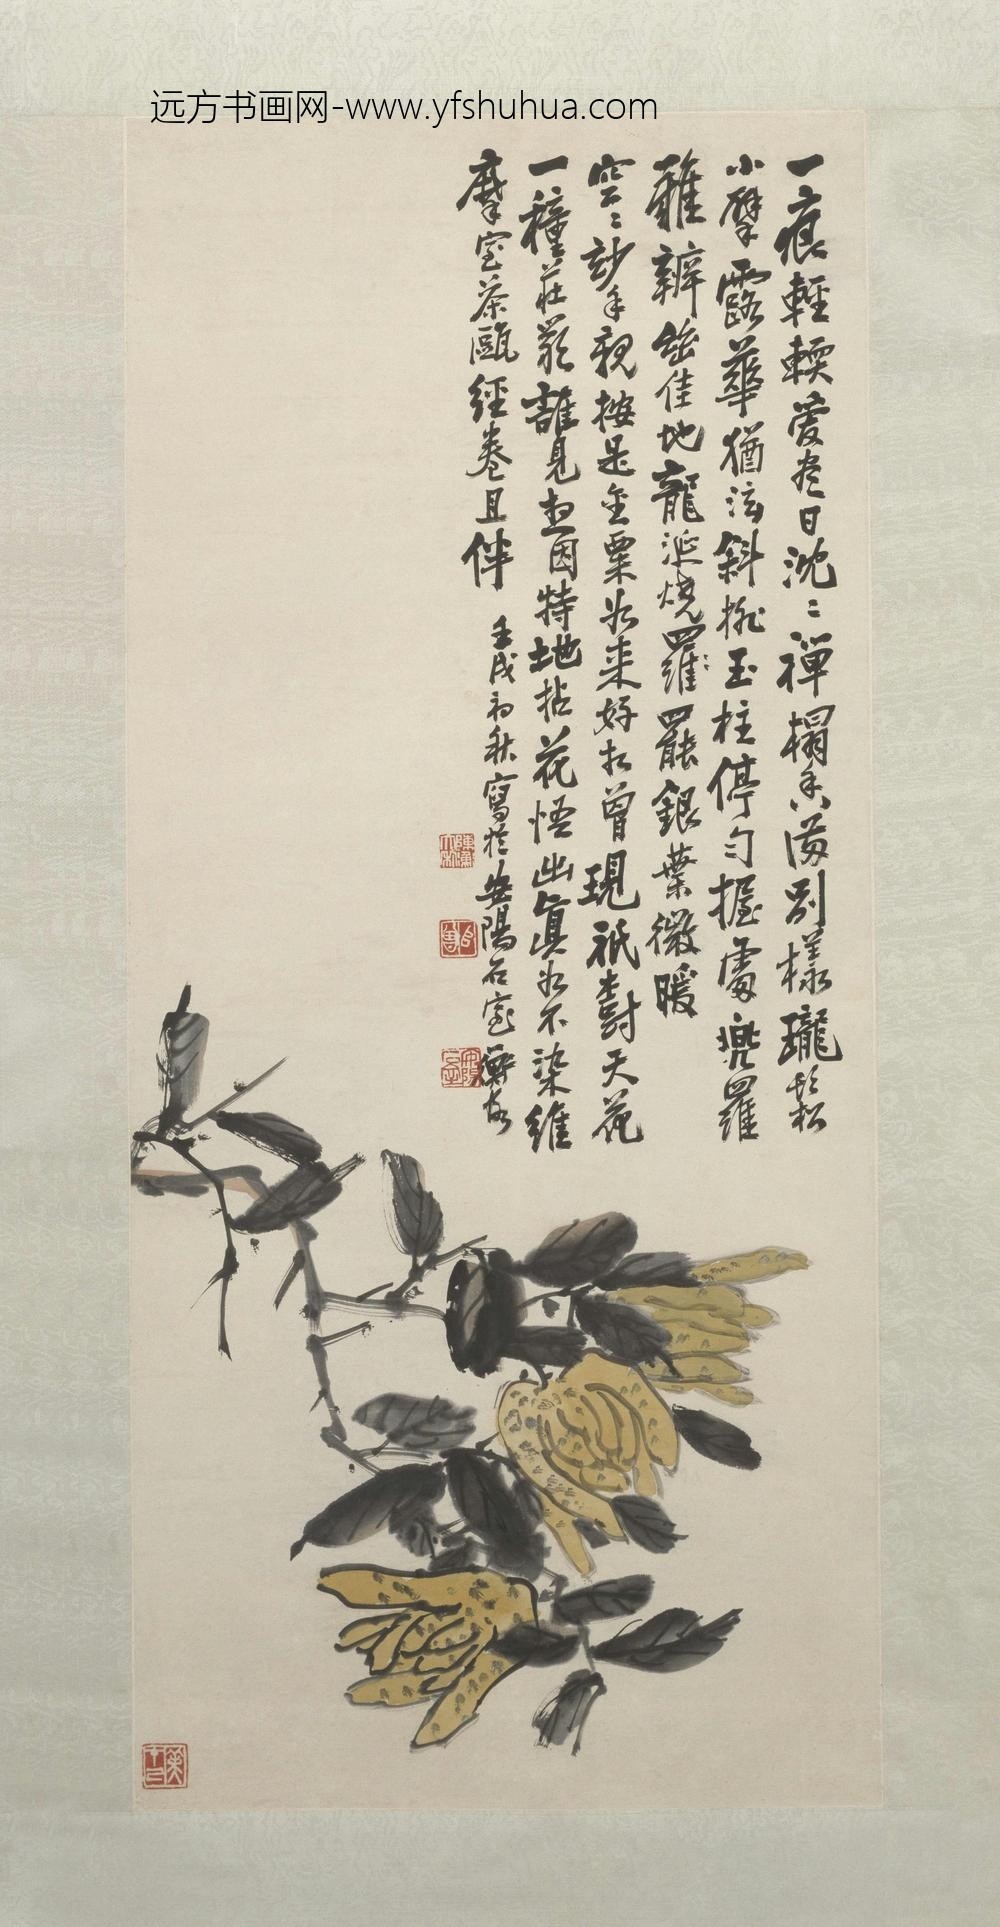 远方书画网-www.yfshuhua.com
一痕輕輭蒼盡日沈〻禪榻香滿別樣瓏鬆
小擘露華猶泫斜擁玉柱停勻握處兜羅
難辨給佳地龍涎燒罷銀葉微暖
空〻妙手親按是金粟如來好相曾現祇對天花
一種莊嚴誰見忽因特地拈花悟出真如不染維
摩室茶甌經卷且伴
壬戌初秋寫於安陽石室 衡古